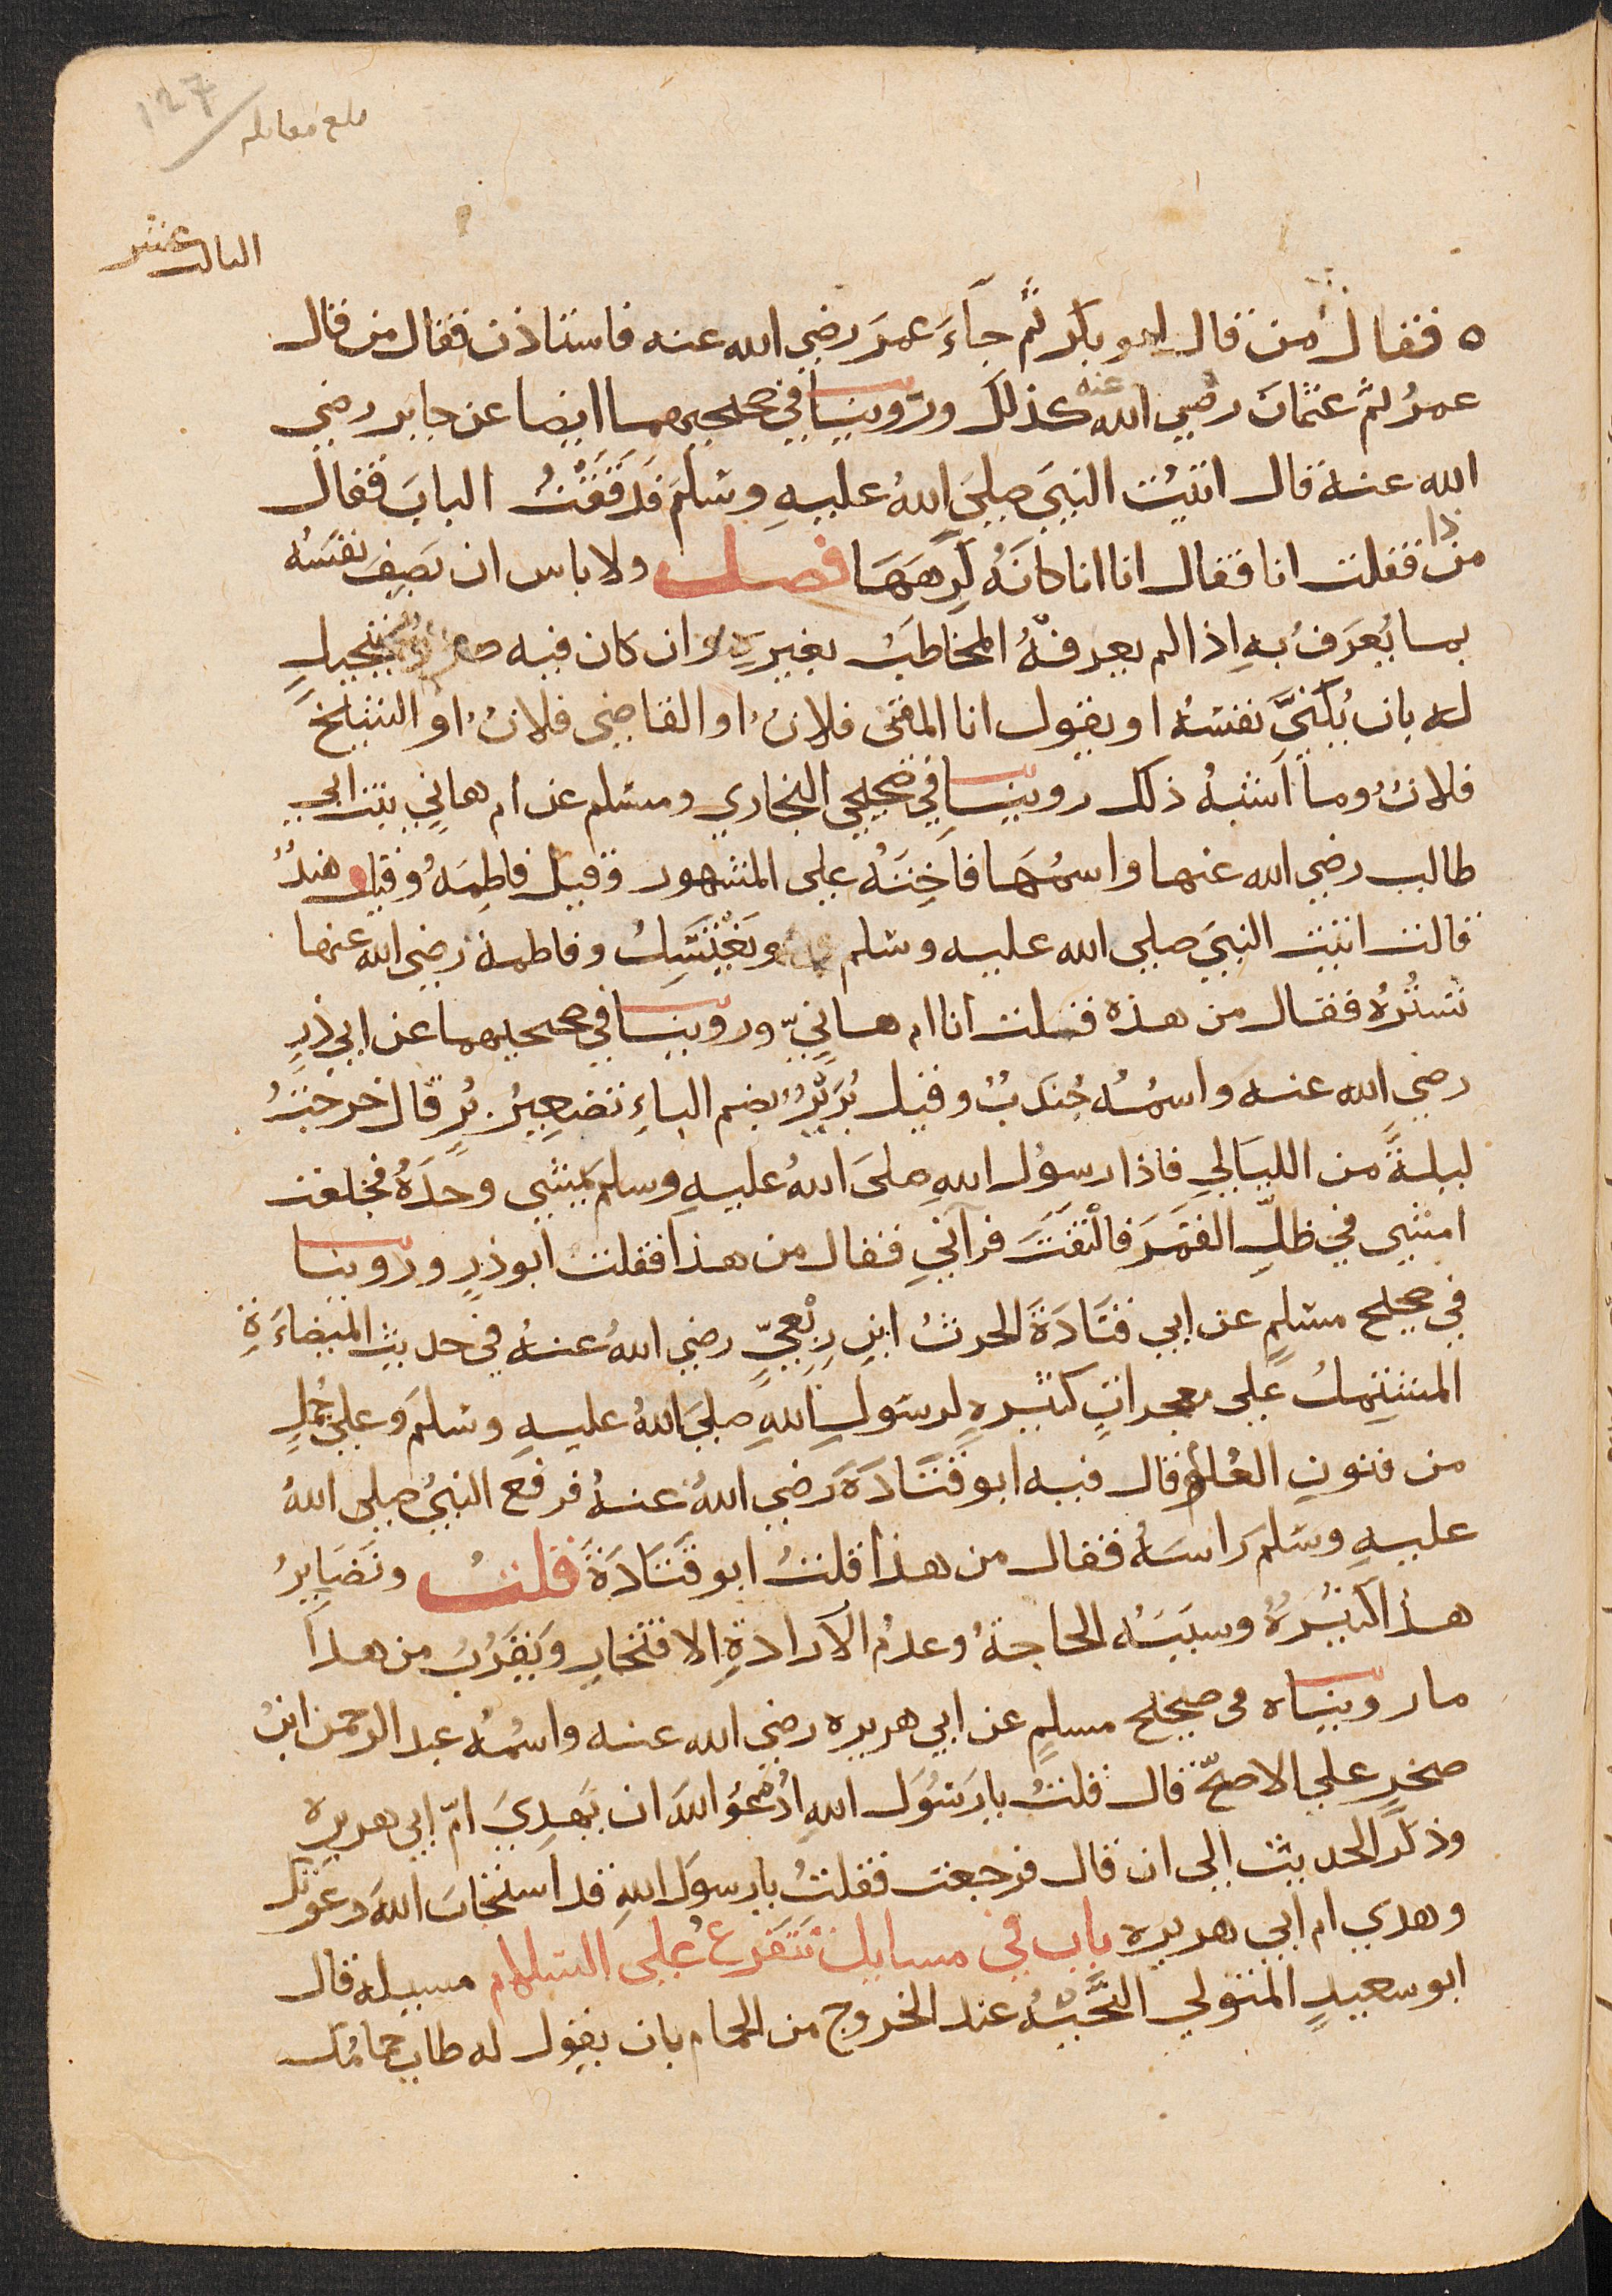 127
بلغ مقابلة
الثالث عشر
ه فقال من قال ابو بكر ثم جآءَ عمرَ رضي الله عنه فاستاذن فقال من قال
عمرُ ثم عثمانَ رضي الله عنه كذلك وروينا في صحيحيهما ايضا عن جابر رضي
الله عنه قال اتيتُ النبيَ صليَ اللهُ عليهِ وسلمَ فدققتُ البابَ فقال
من ذا فقلت انا فقال انا انا كانهُ كرِهَهَا فصل ولا باس ان يَصِفَ نفسَهُ
بما يُعرَفُ بهِ اذا لم يعرفْهُ المخاطَبُ بغيرِهِ وان كان فيه صورة تبجيلٍ
له بان يُكنيَّ نفسَهُ او يقول انا المفتى فلانٌ او القاضي فلانٌ او الشيخَ
فلانٌ وما اَشبهُ ذلك روينا في صحيحي البخاري ومسلم عن ام هاني بنت ابي
طالب رضي الله عنها واسمُهَا فاخِتَهُ علي المشهور وقيل فاطِمَهُ وقيل هندٌ
قالت اتيت النبيَ صلي الله عليه وسلم وَهوَ يَغْتَسِلُ وفاطمة رضي الله عنها
تَستُرُهُ فقال من هذه فقلت انا ام هانيّ وروينا في صحيحيهما عن ابي ذرٍ
رضي الله عنه واسمُهُ جُندَبُ وقيل بُرَيْرُ بضم الباءِ تصَغِيرُ بُرٍ قال خرجتُ
ليلةً من الليَالي فاذا رسوُل اللهِ صليَ اللهُ عليهِ وسلمَ يمَشي وحَدَهُ فجَعلت
امْشي في ظلِّ القَمَرَ فالْتَفَتَ فرآنيِ فقال من هذا فقلتُ ابو ذرٍ وروينا
في صحيح مسلمٍ عن ابي قتَادَةَ الحرثُ ابنِ رِبْعيٍّ رضي اللهُ عنهُ في حديث الميضاءَةِ
المشتِمِلُ علي معجراتٍ كثيرهٍ لرسَولِ اللهِ صليَ اللهُ عليهِ وسلمَ وعلي جُمَلٍ
من فنونِ العُلومِ قال فيه ابو قتَادَةَ رَضي اللهُ عنهُ فرفع النبيُ صلى اللهُ
عليهِ وسَلمَ رَاسَهُ فقال من هذا قلتُ ابو قَتَادَةَ قلتُ ونَضَايِرُ
هذا كثيرَةٌ وسبَبَهُ الحاجةُ وعدمُ الاَرادةِ الافتخارِ ويَقرُبُ من هذا
ما رويناه في صحيح مسلمٍ عن ابي هريره رضي الله عنه واسمُه عبد الرحمن ابن
صخرٍ علي الاصحّ قال قلتُ يارَسُوَل اللهِ ادْعُو اللهَ ان يَهدِيَ امّ ابي هريره
وذكرَ الحديث الى ان قال فرجعت فقلتُ يارسولَ اللهِ قد استجابَ اللهُ دعَوتَكَ
وهدي ام ابي هريره باب في مسايل تتَفَرع عُلي السلام مسيله قال
ابو سعيدٍ المتولي التَّحيَّهُ عند الخروج من الحمام بان يقول له طاب حمامُك